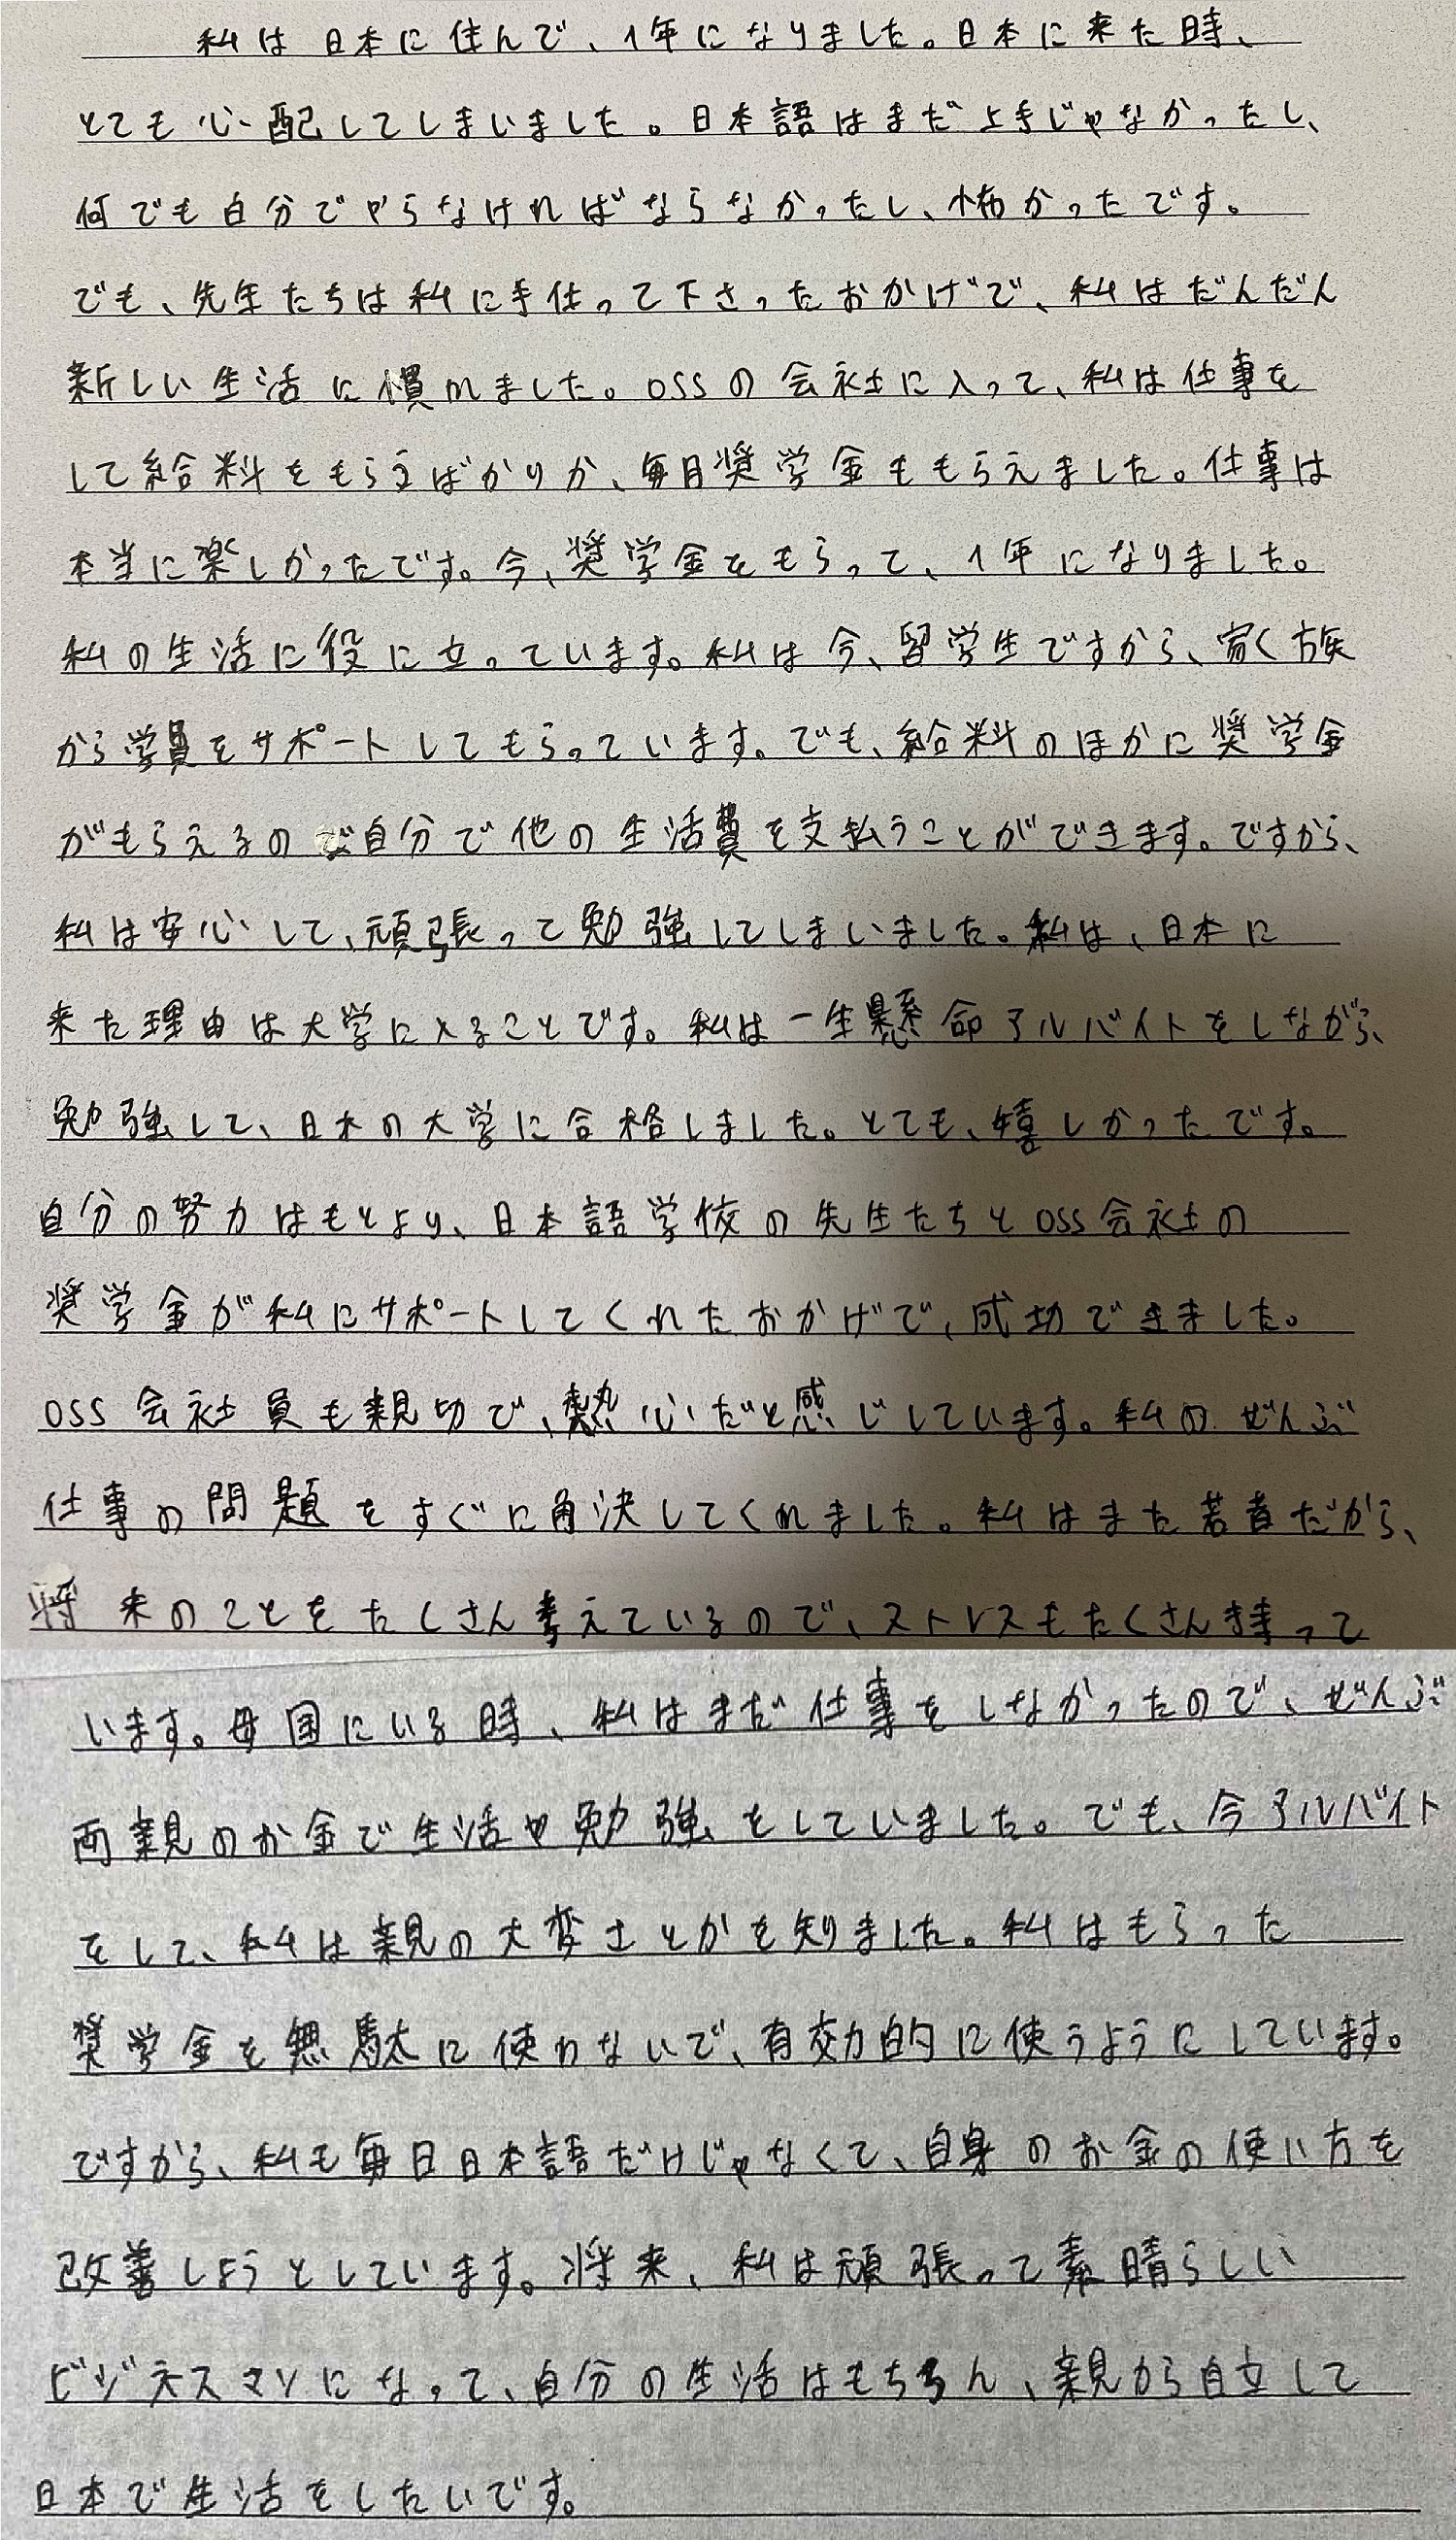 私は日本に住んで、1年になりました。日本に来た時、
とても心配してしまいました。日本語はまだ上手じゃなかったし、
何でも自分でやらなければならなかったし、怖かったです。
でも、先生たちは私に手伝って下さったおかげで、私はだんだん
新しい生活に慣れました。OSSの会社に入って、私は仕事を
して給料をもらうばかりか、毎月奨学金ももらえました。仕事は
本当に楽しかったです。今、奨学金をもらって、1年になりました。
私の生活に役に立っています。私は今、留学生ですから、家く族
から学費をサポートしてもらっています。でも、給料のほかに奨学金
がもらえるので自分で他の生活費を支払うことができます。ですから、
私は安心して、頑張って勉強してしまいました。私は、日本に
来た理由は大学に入ることです。私は一生懸命アルバイトをしながら、
勉強して、日本の大学に合格しました。とても、嬉しかったです。
自分の努力はもとより、日本語学校の先生たちとOSS会社の
奨学金が私にサポートしてくれたおかげで、成功できました。
OSS会社員も親切で、熱心だと感じしています。私のぜんぶ
仕事の問題をすぐに解決してくれました。私はまた若者だから、
将来のことをたくさん考えているので、ストレスもたくさん持って
います。母国にいる時、私はまだ仕事をしなかったので、ぜんぶ
両親のお金で生活や勉強をしていました。でも、今アルバイト
をして、私は親の大変さとかを知りました。私はもらった
奨学金を無駄に使わないで、有効的に使うようにしています。
ですから、私も毎日日本語だけじゃなくて、自身のお金の使い方を
改善しようとしています。将来、私は頑張って素晴らしい
ビジネスマンになって、自分の生活はもちろん、親から自立して
日本で生活をしたいです。